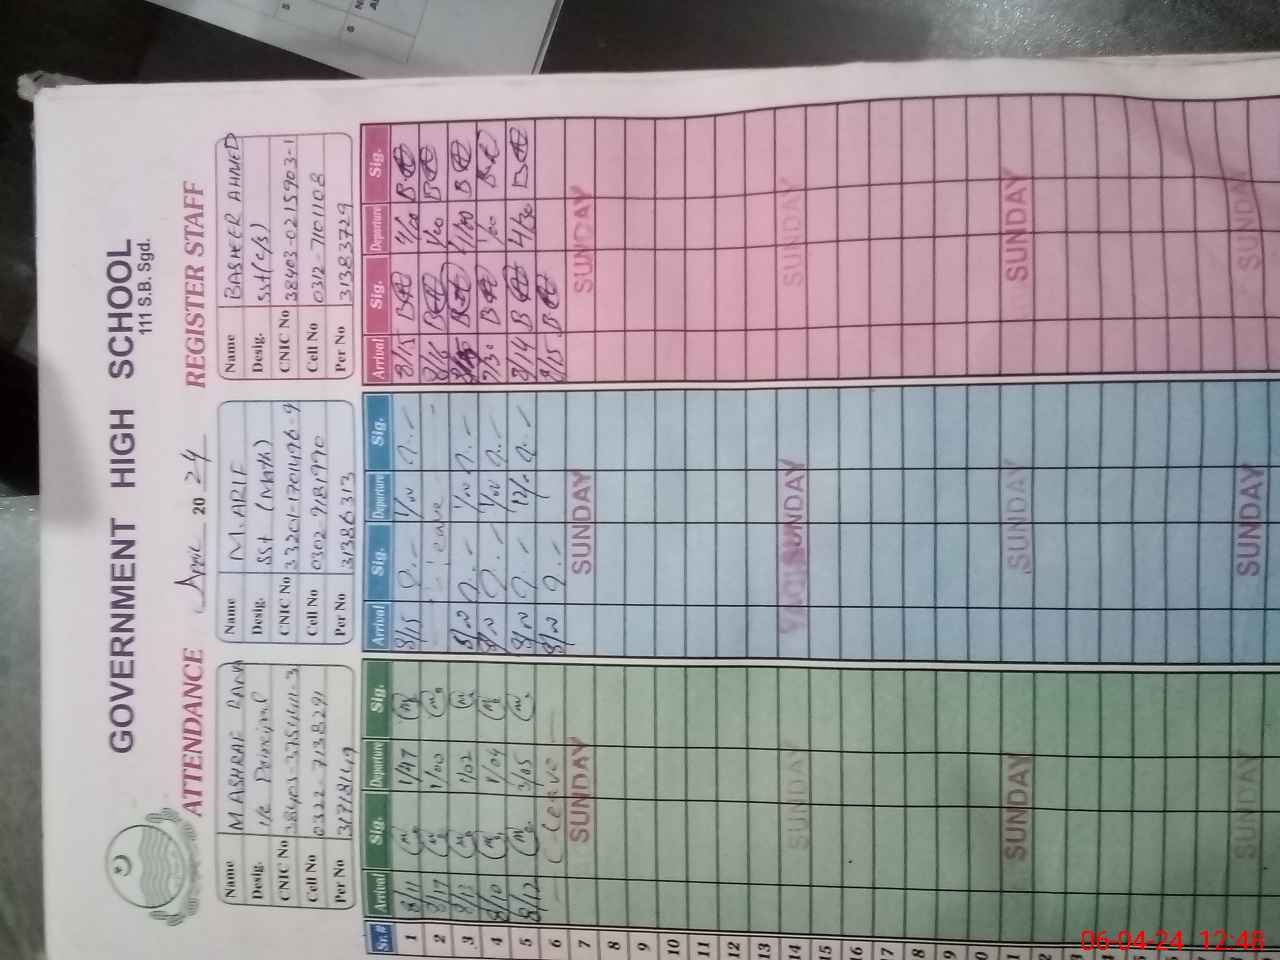 GOVERNMENT HIGH SCHOOL
111 S.B. Sgd.
ATTENDANCE April 2024 REGISTER STAFF
Name M ASHRAF RANA
Desig. I/c Principal
CNIC No
Cell No 0322-7138291
Per No
Name M. ARIF
Desig. SST (Math)
CNIC No 33201-1701496-9
Cell No
Per No 31386313
Name BASHEER AHMED
Desig. SST (C/S)
CNIC No 38403-0215903-1
Cell No 0312-7101108
Per No 31383729
Sr.# Arrival Sig. Departure Sig. Arrival Sig. Departure Sig. Arrival Sig. Departure Sig.
1 8/11 1/47 8/15 1/00 8/15 1/00
2 8/17 1/00 Leave 8/16 1/00
3 8/13 1/02 8/00 1/00 1/00
4 8/10 1/04 8/00 1/00 7/30 1/00
5 8/12 3/05 8/00 12/00 8/14 4/30
6 Leave 8/00 8/15
7 SUNDAY SUNDAY SUNDAY
8
9
10
11
12
13
14 SUNDAY SUNDAY SUNDAY
15
16
17
8
9
0
1 SUNDAY SUNDAY SUNDAY
2
3
4
5
6
7
8 SUNDAY SUNDAY SUNDAY
06-04-24 12:48